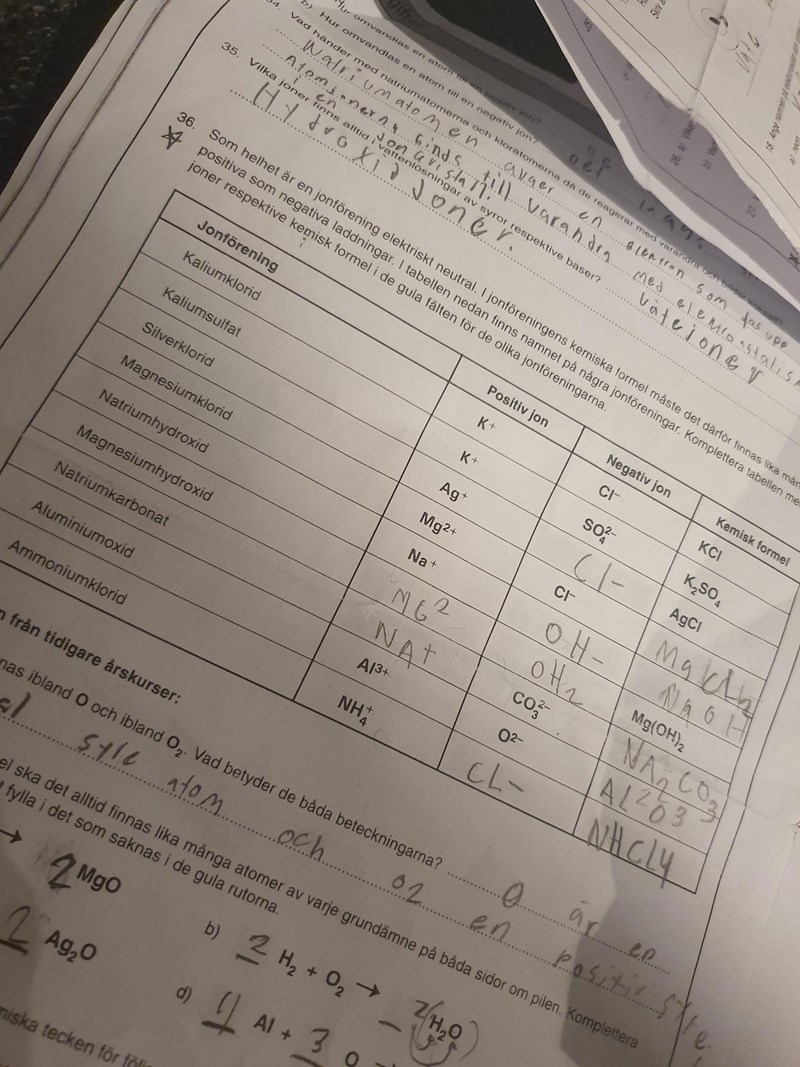 b) Hur omvandlas en atom till en negativ jon?
34. Vad händer med natriumatomerna och kloratomerna då de reagerar med varandra och
Natriumatomen avger en elektron som tas upp
Atomjonerna binds till varandra med elektrostatisk
i en jonkristall.
35. Vilka joner finns alltid i vattenlösningar av syror respektive baser?
Hydroxidjoner. Vätejoner
36. Som helhet är en jonförening elektriskt neutral. I jonföreningens kemiska formel måste det därför finnas lika mån
positiva som negativa laddningar. I tabellen nedan finns namnet på några jonföreningar. Komplettera tabellen me
joner respektive kemisk formel i de gula fälten för de olika jonföreningarna.
Jonförening Positiv jon Negativ jon Kemisk formel
Kaliumklorid K⁺ Cl⁻ KCl
Kaliumsulfat K⁺ SO₄²⁻ K₂SO₄
Silverklorid Ag⁺ Cl- AgCl
Magnesiumklorid Mg²⁺ Cl⁻ MgCl2
Natriumhydroxid Na⁺ OH- NAOH
Magnesiumhydroxid MG2 OH2 Mg(OH)₂
Natriumkarbonat NA+ CO₃²⁻ NA2CO3
Aluminiumoxid Al³⁺ O²⁻ AL2O3
Ammoniumklorid NH₄⁺ CL- NHCl4
n från tidigare årskurser:
nas ibland O och ibland O₂. Vad betyder de båda beteckningarna? O är en
syre atom och O2 en positiv syre.
el ska det alltid finnas lika många atomer av varje grundämne på båda sidor om pilen. Komplettera
fylla i det som saknas i de gula rutorna.
→ 2 MgO
b) 2 H₂ + O₂ → 2(H₂O)
2 Ag₂O
d) 4 Al + 3 O
miska tecken för föl